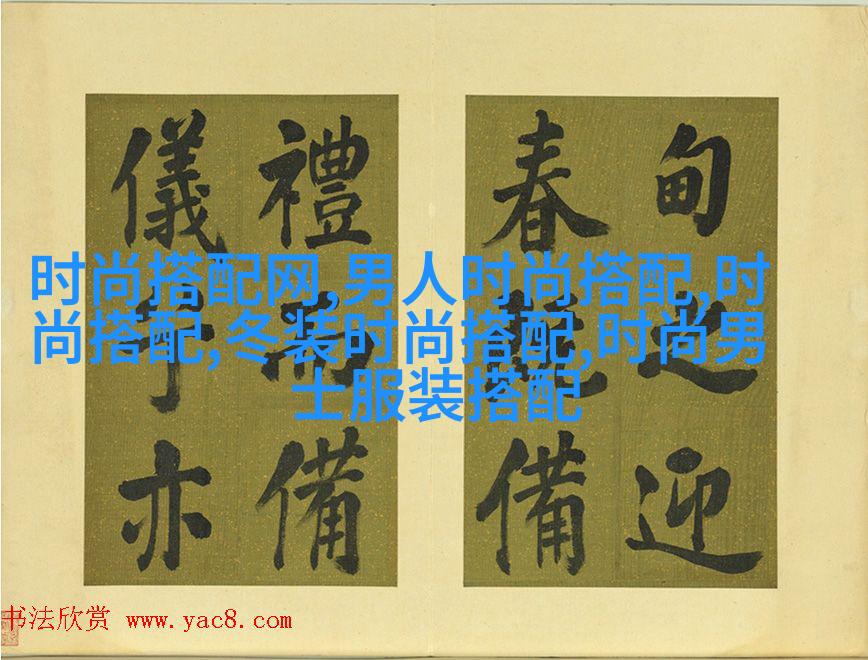 时尚搭配网,男人时尚搭配,时
尚搭配,冬装时尚搭配,时尚男
士服装搭配
甸之迎
春備
禮而備
儀亦
书法欣赏 www.yac8.com